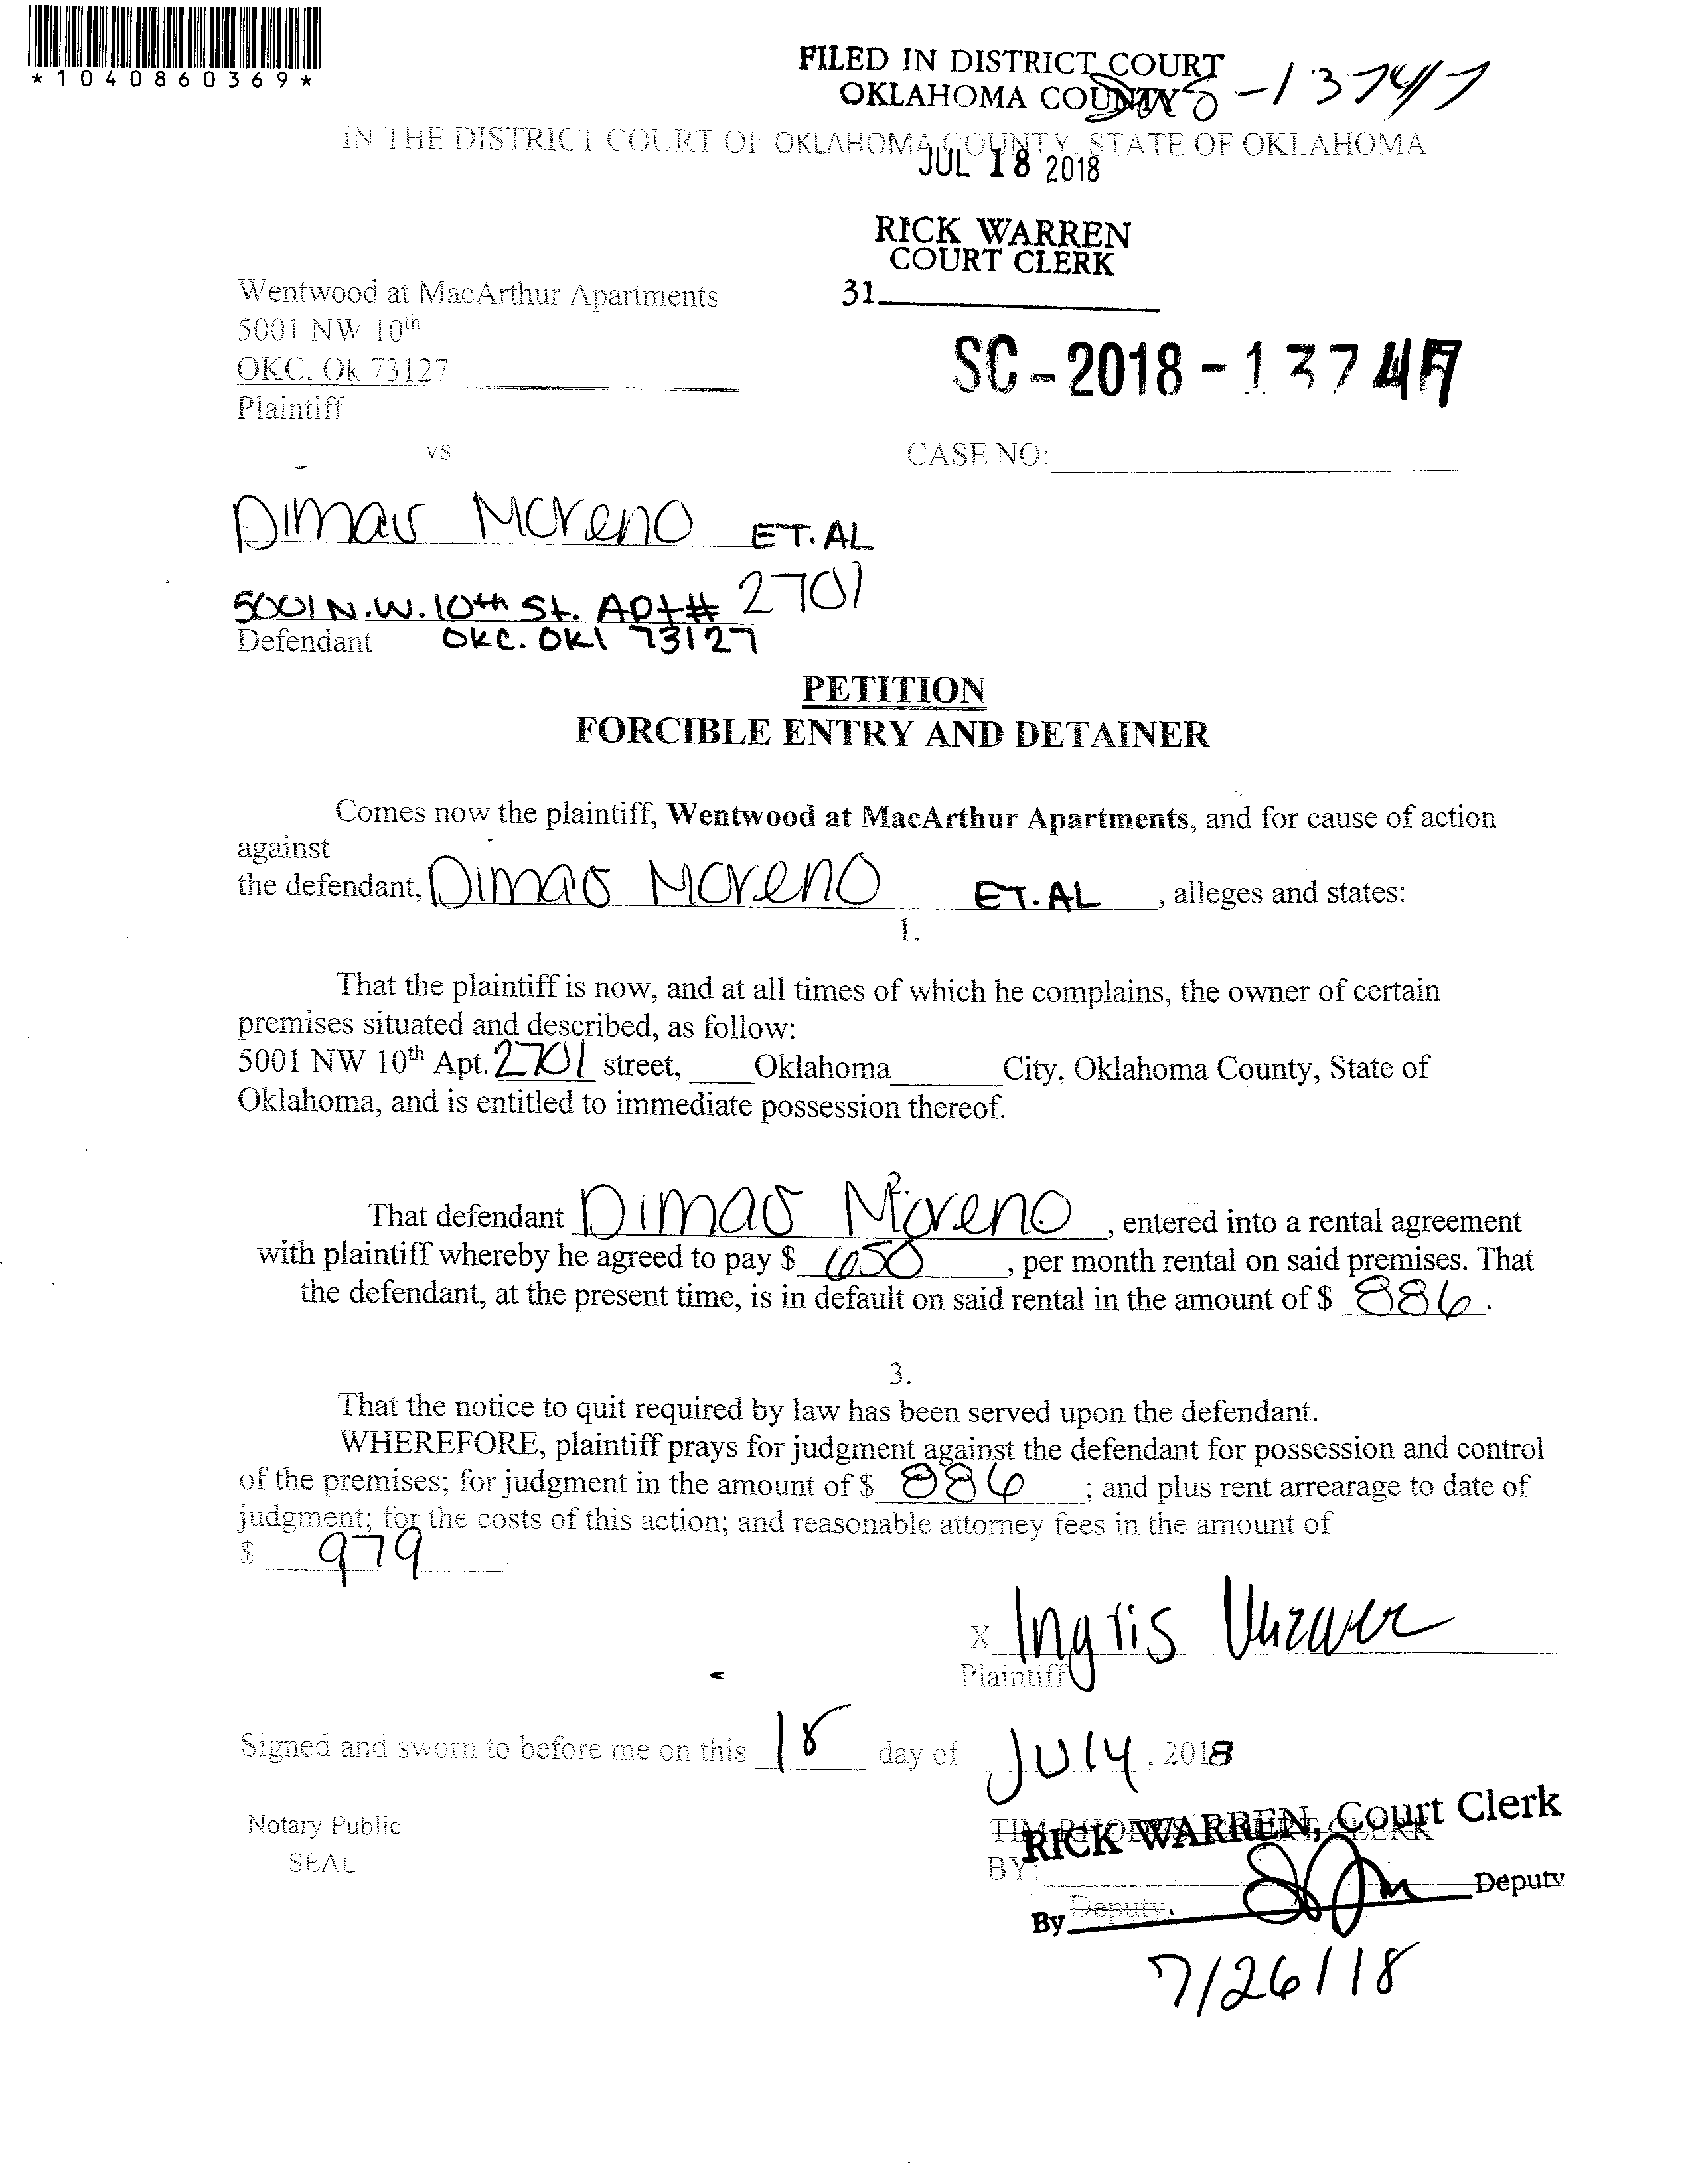 *1040860369*
FILED IN DISTRICT COURT
OKLAHOMA COUNTY
-13747
IN THE DISTRICT COURT OF OKLAHOMA COUNTY, STATE OF OKLAHOMA
JUL 18 2018
RICK WARREN
COURT CLERK
31
Wentwood at MacArthur Apartments
5001 NW 10th
OKC, Ok 73127
Plaintiff
SC-2018-13747
vs
CASE NO:
Dimas Moreno ET.AL
5001 N.W. 10th St. Apt# 2701
Defendant OKC. OKl 73127
PETITION
FORCIBLE ENTRY AND DETAINER
Comes now the plaintiff, Wentwood at MacArthur Apartments, and for cause of action
against
the defendant, Dimas Moreno ET.AL, alleges and states:
1.
That the plaintiff is now, and at all times of which he complains, the owner of certain
premises situated and described, as follow:
5001 NW 10th Apt. 2701 street, Oklahoma City, Oklahoma County, State of
Oklahoma, and is entitled to immediate possession thereof.
That defendant Dimas Moreno, entered into a rental agreement
with plaintiff whereby he agreed to pay $ 650, per month rental on said premises. That
the defendant, at the present time, is in default on said rental in the amount of $ 886.
3.
That the notice to quit required by law has been served upon the defendant.
WHEREFORE, plaintiff prays for judgment against the defendant for possession and control
of the premises; for judgment in the amount of $ 886; and plus rent arrearage to date of
judgment; for the costs of this action; and reasonable attorney fees in the amount of
$ 979
X Ingris
Plaintiff
Signed and sworn to before me on this 18 day of July, 2018
Notary Public
SEAL
TIM RHODES, COURT CLERK
RICK WARREN, Court Clerk
BY:
Deputy
Deputy.
By
7/26/18